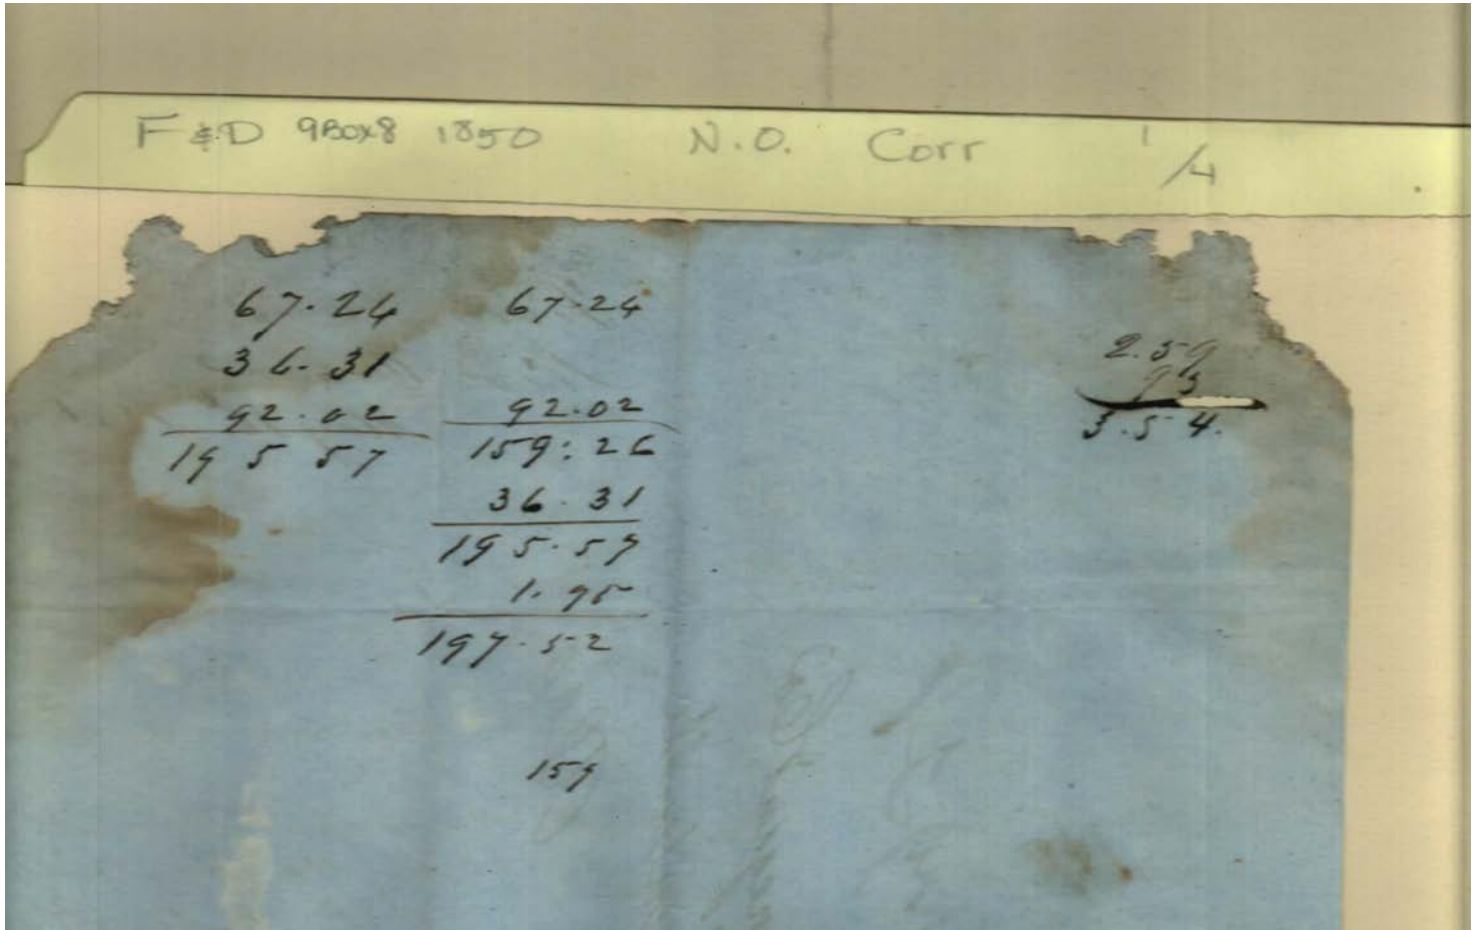 F & D 9Box8 1850 N.O. Corr 1/4
67.24
36.31
92.02
195 57
67.24
92.02
159:26
36.31
195.57
1.95
197.52
159
2.59
95
3.54.